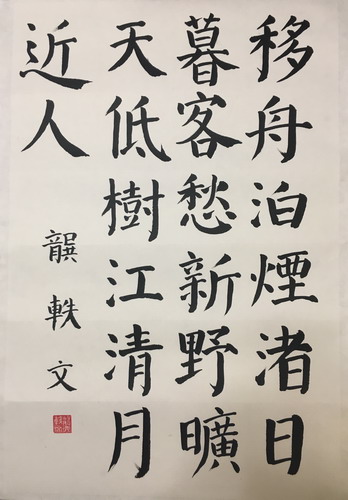 移舟泊煙渚日
暮客愁新野曠
天低樹江清月
近人
龔軼文